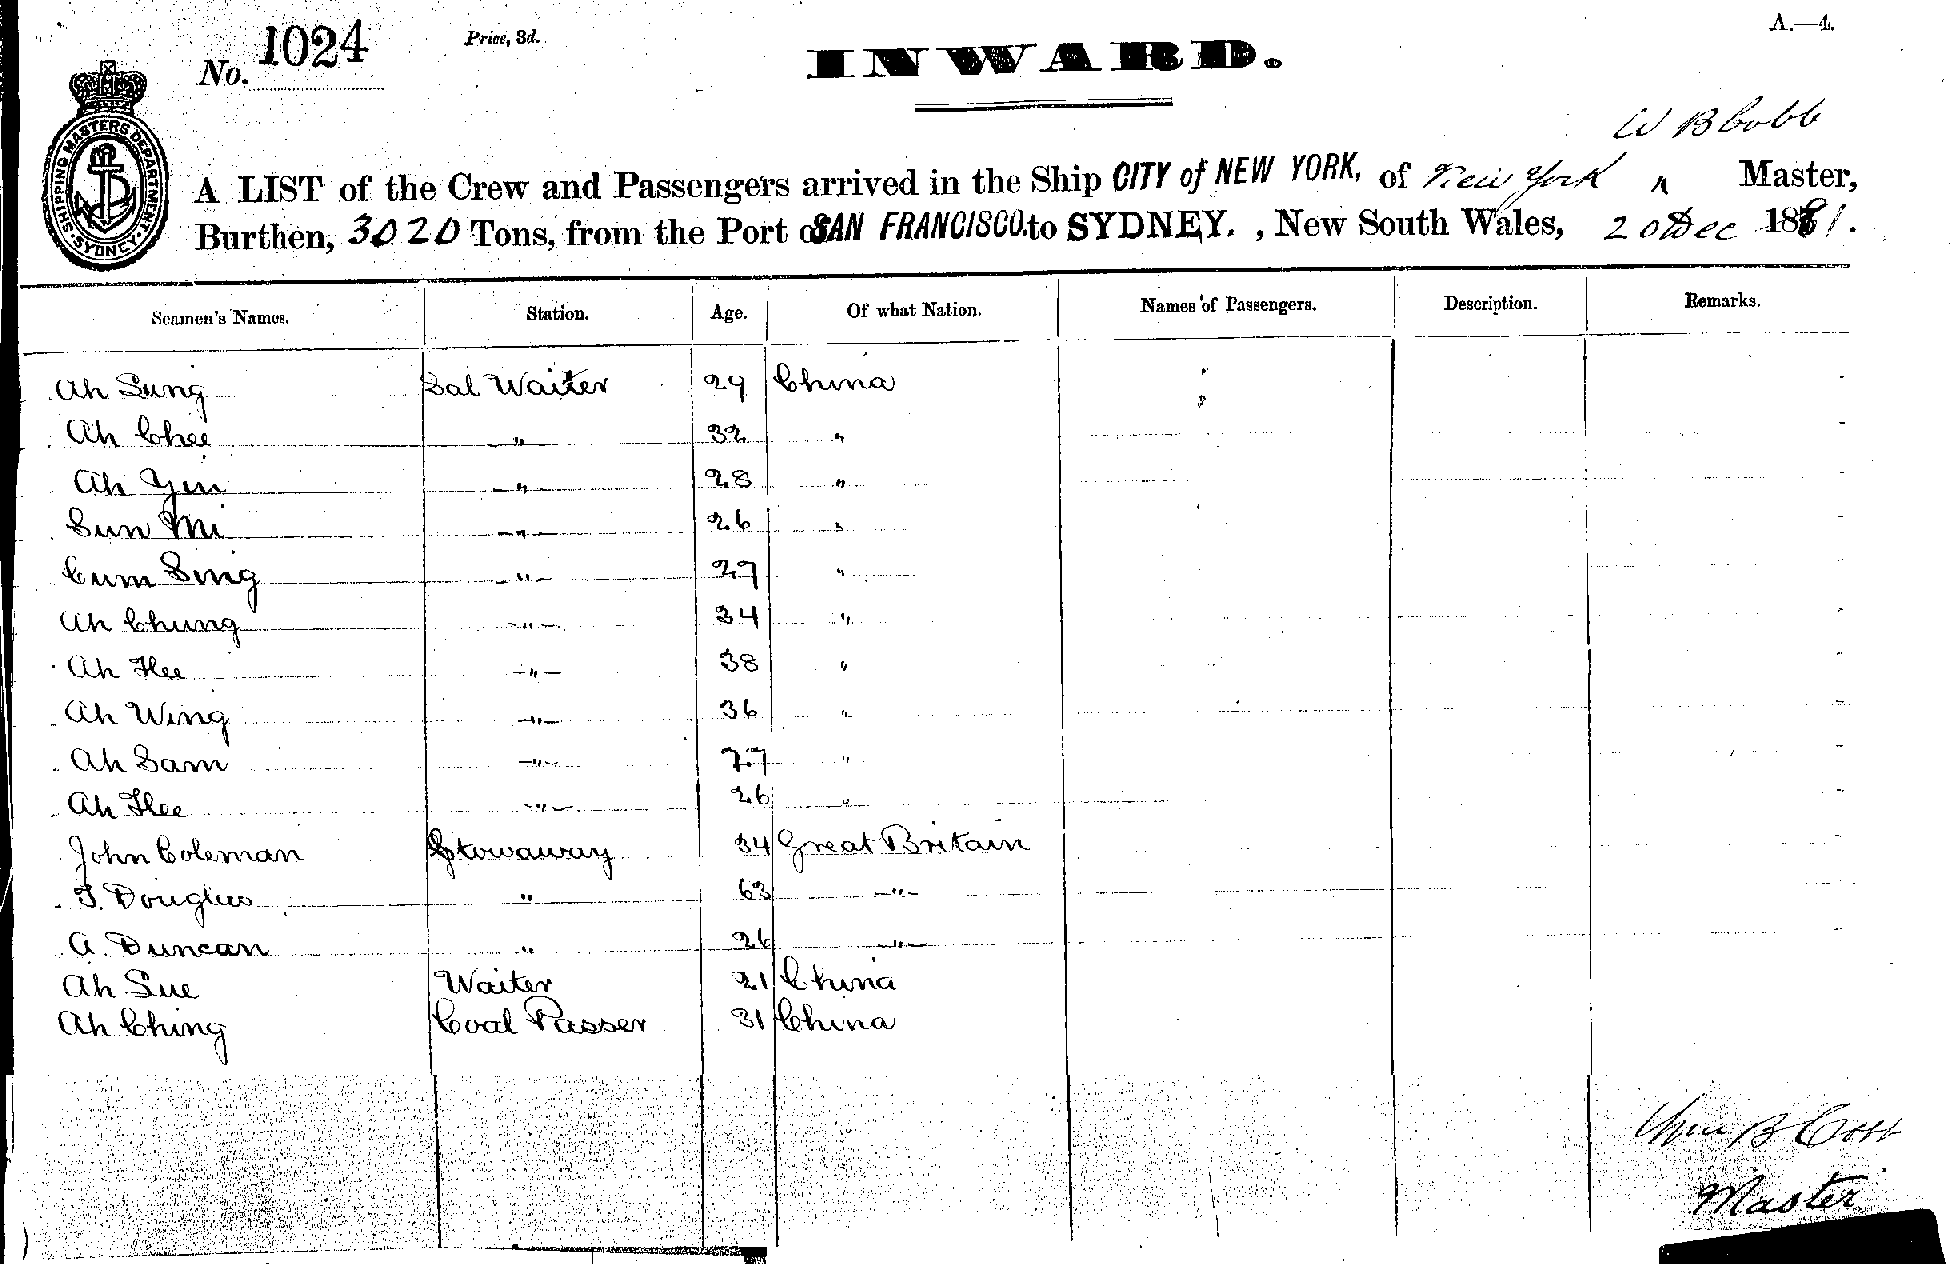 No. 1024
Price, 3d.
A.—4.
INWARD.
SHIPPING MASTERS DEPARTMENT SYDNEY
W B Cobb
A LIST of the Crew and Passengers arrived in the Ship CITY of NEW YORK, of New York Master,
Burthen, 3020 Tons, from the Port of SAN FRANCISCO. to SYDNEY. , New South Wales, 20 Dec 1881.
Seamen's Names. Station. Age. Of what Nation. Names of Passengers. Description. Remarks.
Ah Sung Sal Waiter 29 China
Ah Chee " 32 "
Ah Yin " 28 "
Sun Mi " 26 "
Cum Sing " 27 "
Ah Chung " 34 "
Ah Hee " 38 "
Ah Wing " 36 "
Ah Sam " 27 "
Ah Hee " 26 "
John Coleman Stowaway 34 Great Britain
T. Douglas " 63 "
A. Duncan " 26 "
Ah Sue Waiter 21 China
Ah Ching Coal Passer 31 China
B Cobb
Master